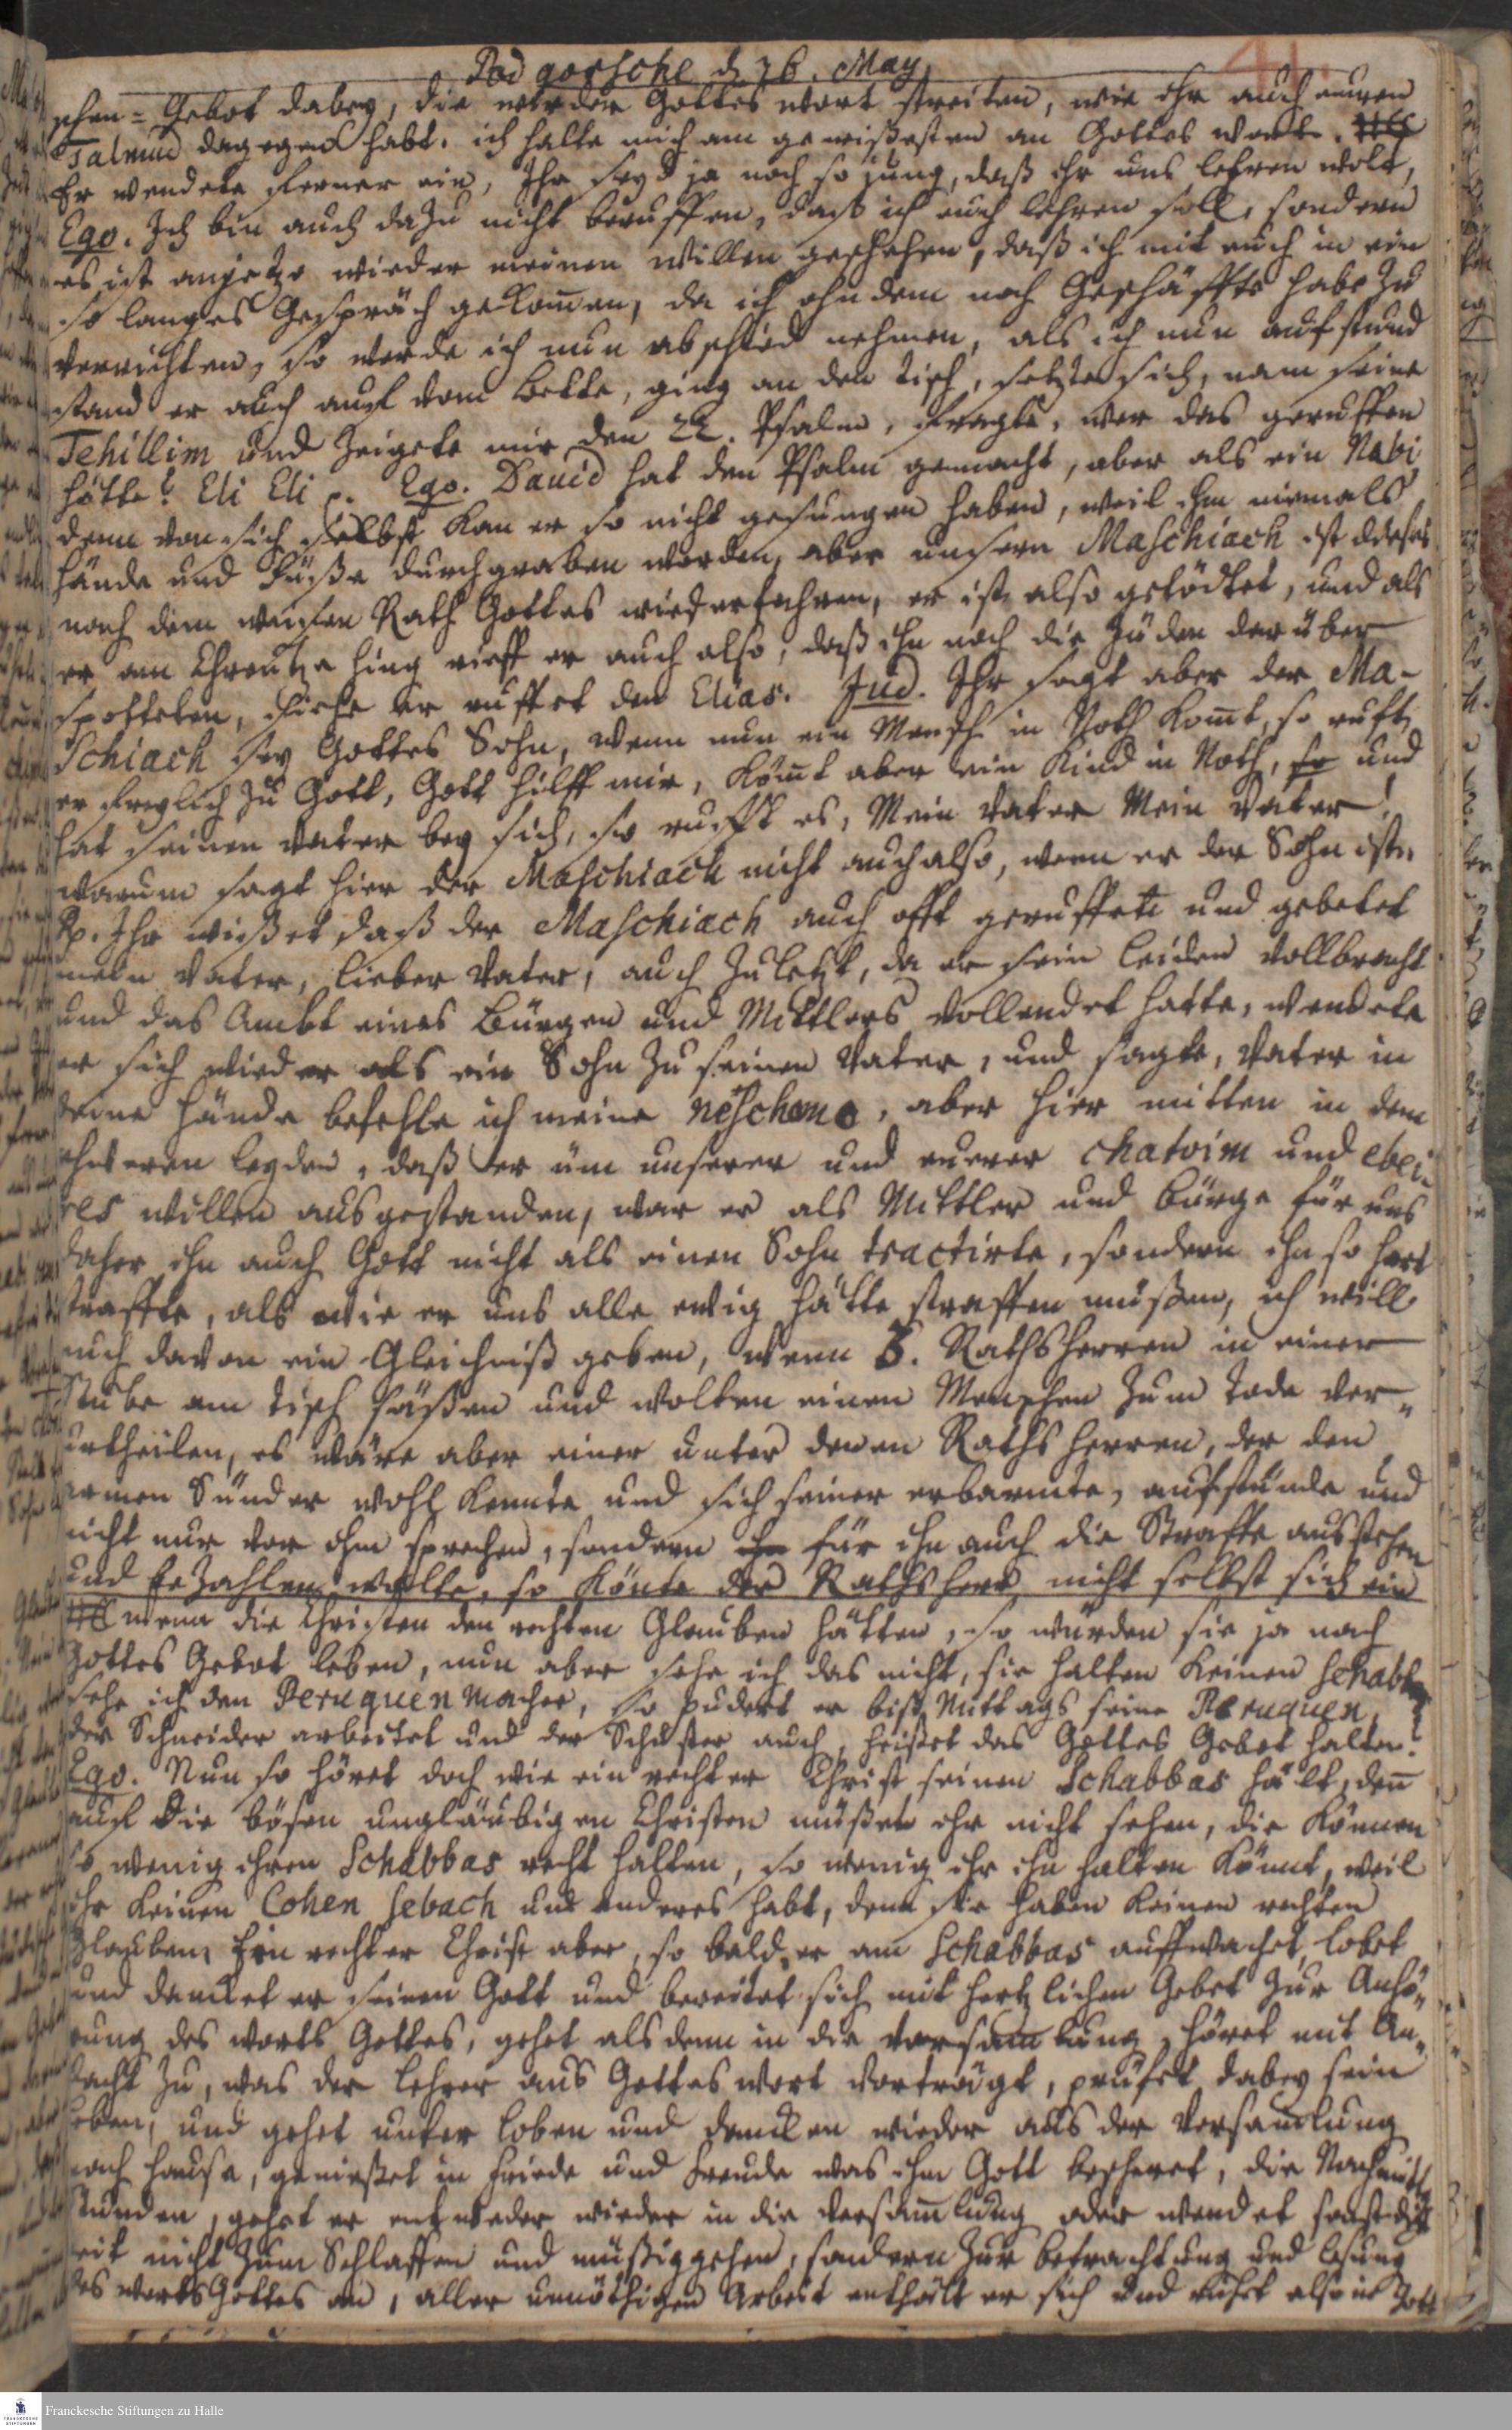 Podgorsche d. 36. May
41.
schen-Gebot dabey, die wieder Gottes wort streiten, wie ihr auch euren
Talmud dagegen habt. ich halte mich am gewißesten an Gottes wort.
Er wendete ferner ein, Ihr seyd ja noch so jung, daß ihr uns lehren wolt,
Ego. Ich bin auch dazu nicht beruffen, daß ich euch lehren soll, sondern
es ist anjetzo wieder meinen willen geschehen, daß ich mit euch in ein
so langes Gespräch gekom̅en, da ich ohndem noch Geschäffte habe zu
verrichten, so werde ich nun abschied nehmen, als ich nun aufstund
stand er auch auf vom Bette, ging an den tisch, setzte sich, nam seine
Tehillim und zeigete mir den 22. Psalm, fragte, wer das geruffen
hätte? Eli Eli p. Ego. David hat den Psalm gemacht, aber als ein Nabi,
denn von sich selbst kan er so nicht gesungen haben, weil ihm niemals
hände und füße durchgraben worden, aber unsern Maschiach ist dieses
nach dem weisen Rath Gottes wiederfahren, er ist also getödtet, und als
er am Chreutze hing rieff er auch also, daß ihn noch die Jüden darüber
spotteten, siehe er ruffet den Elias. Jud. Ihr sagt aber der Ma-
schiach sey Gottes Sohn, wenn nun ein Mensch in Noth kom̅t, so rufft
er freylich zu Gott, Gott hilff mir, köm̅t aber ein Kind in Noth, und
hat seinen Vater bey sich, so rufft es, Mein Vater Mein Vater!
warum sagt hier der Maschiach nicht auch also, wenn er der Sohn ist.
Rp. Ihr wißet daß der Maschiach auch offt geruffen und gebetet
mein Vater, lieber Vater, auch zuletzt, da er sein leiden vollbracht
und das Ambt eines Bürgen und Mittlers vollendet hatte, wendete
er sich wieder als ein Sohn zu seinen Vater, und sagte, Vater in
deine hände befehle ich meine neschome, aber hier mitten in dem
schweren leyden, daß er üm unserer und eurer chatoim und ebei-
res willen ausgestanden, war er als Mittler und bürge für uns
daher ihn auch Gott nicht als einen Sohn tractirte, sondern ihn so hart
straffte, als wie er uns alle ewig hätte straffen müßen, ich will
euch davon ein Gleichniß geben, Wenn 3. Rathsherren in einer
Stube am tisch säßen und wolten einen Menschen zum tode ver-
urtheilen, es wäre aber einer unter denen Rathsherren, der den
armen Sünder wohl kennte und sich seiner erbarmte, aufstünde und
nicht nur vor ihm sprechen, sondern für ihn auch die Straffe ausstehen
und bezahlen wollte, so könte der Rathsherr nicht selbst sich ein
wenn die Christen den rechten Glauben hätten, so würden sie ja nach
Gottes Gebot leben, nun aber sehe ich das nicht, sie halten keinen Schabbas
sehe ich den Peruquenmacher, so pudert er biß Mittags seine Peruquen,
der Schneider arbeitet und der Schuster auch, heißet das Gottes Gebot halten?
Ego. Nun so höret doch wie ein rechter Christ seinen Schabbas hält, den̅
auf die bösen ungläubigen Christen müßet ihr nicht sehen, die können
so wenig ihren Schabbas recht halten, so wenig ihr ihn halten könnt, weil
ihr keinen Cohen sebach und anderes habt, denn sie haben keinen rechten
Glauben, Ein rechter Christ aber, so bald er am Schabbas auffwachet, lobet
und dancket er seinen Gott und bereitet sich mit hertzlichen Gebet zur Anhö-
rung des worts Gottes, gehet alsdenn in die versamlung, höret mit An-
dacht zu, was der Lehrer aus Gottes wort vorträgt, prüfet dabey sein
leben, und gehet unter loben und dancken wieder aus der Versamlung
nach hause, genießet in Friede und freude was ihm Gott bescheret, die Nachmitt.
stunden, gehet er entweder wieder in die versam̅lung oder wendet sonst die
zeit nicht zum Schlaffen und müßiggehen, sondern zur betrachtung und lesung
des worts Gottes an, aller unnöthigen Arbeit enthält er sich und ruhet also in Gott
Franckesche Stiftungen zu Halle